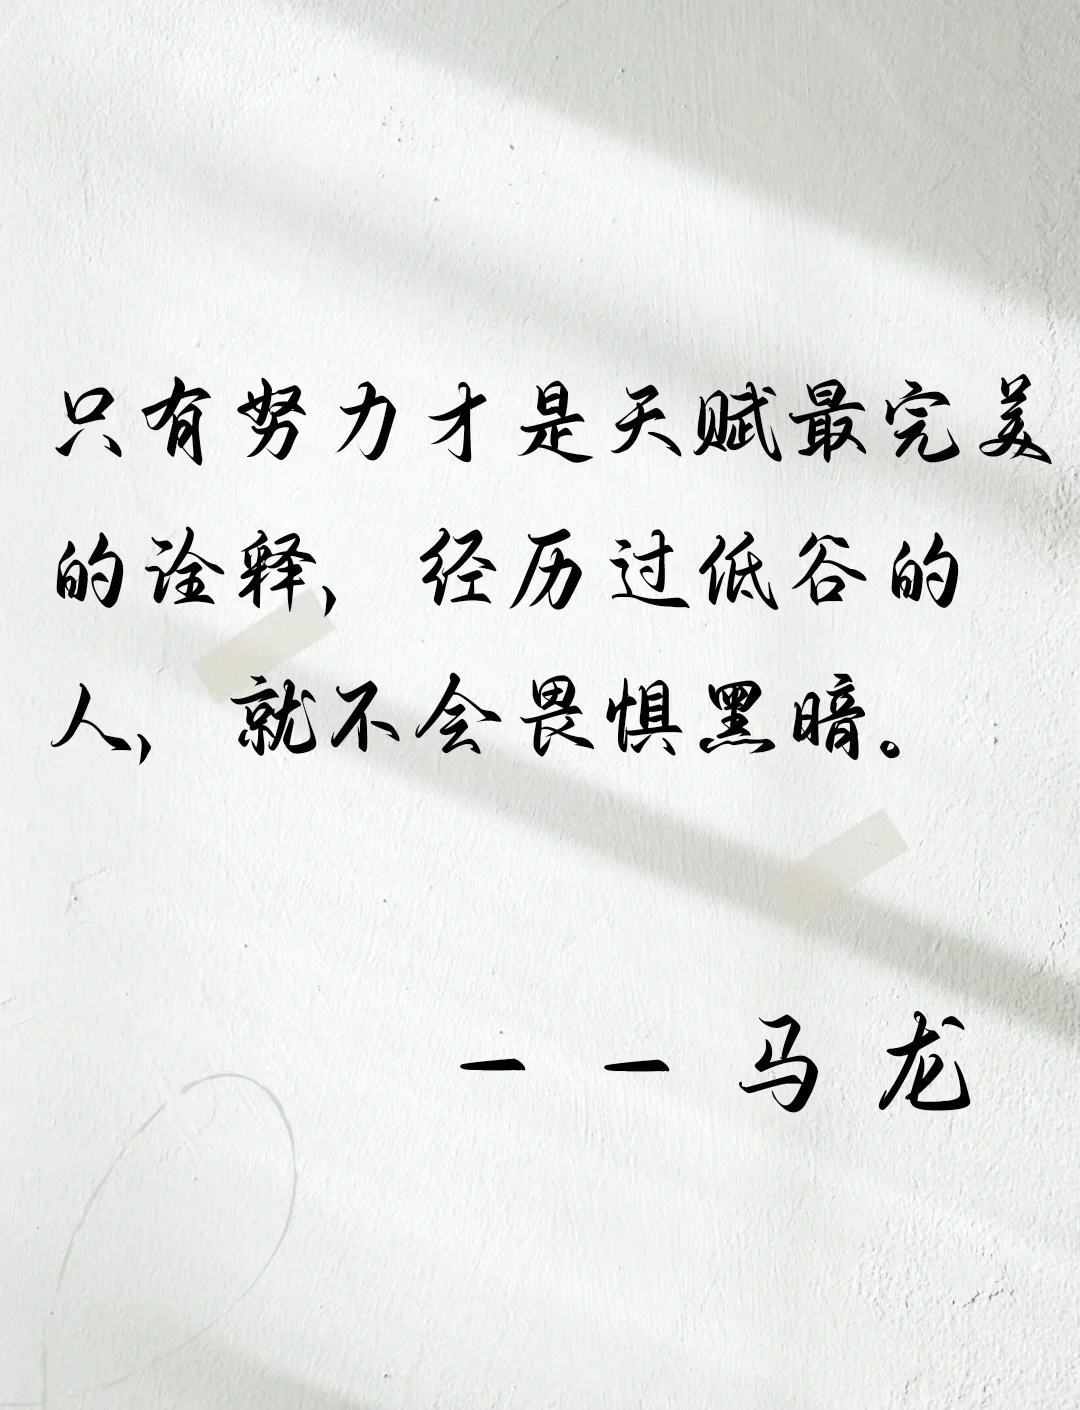 只有努力才是天赋最完美
的诠释，经历过低谷的
人，就不会畏惧黑暗。
——马龙